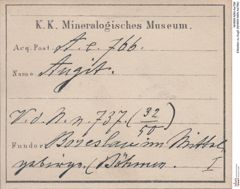 K. K. Mineralogisches Museum.
Acq. Post. A. c. 766.
Name Augit.
V. d. N. n. 737. (32/50)
Fundort Boreslau im Mittel
gebirge (Böhmen.
I